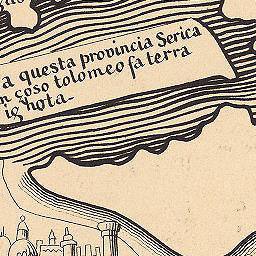 a questa provincia Serica
n coso tolomeo fa terra
ignota-